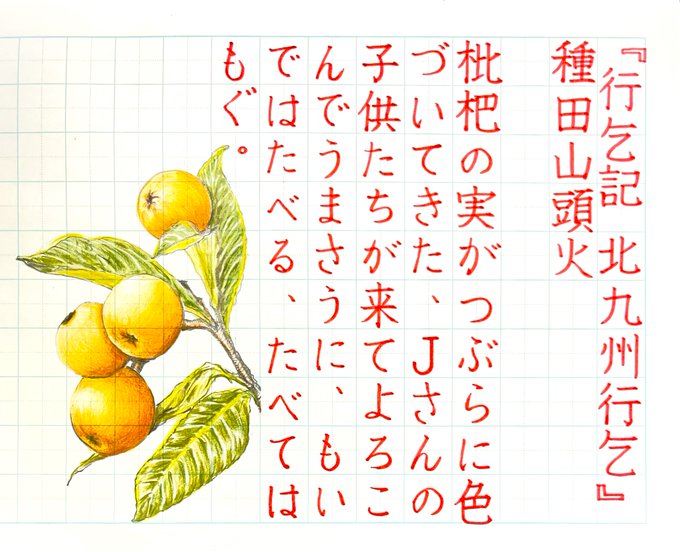 『行乞記 北九州行乞』
種田山頭火
枇杷の実がつぶらに色
づいてきた、Jさんの
子供たちが来てよろこ
んでうまさうに、もい
ではたべる、たべては
もぐ。